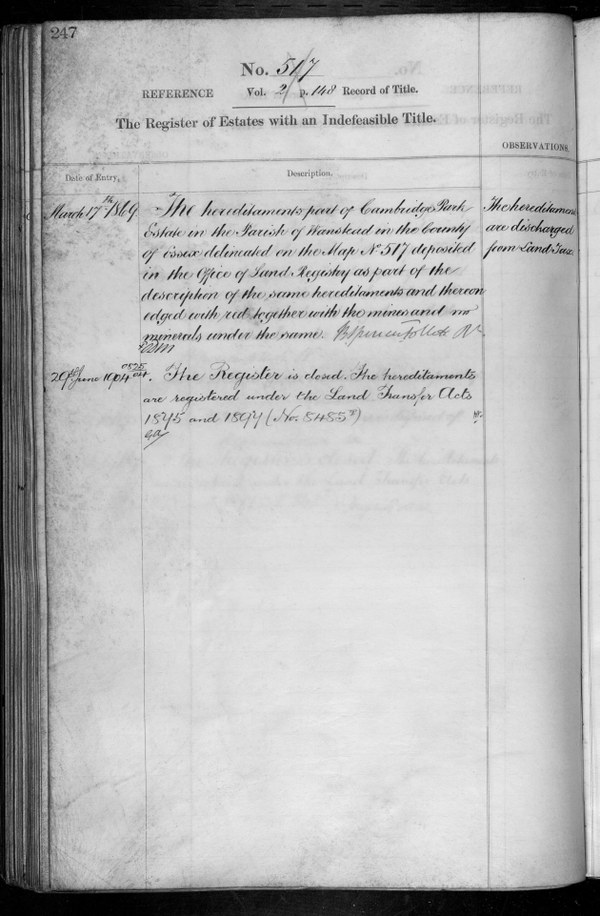 247
No. 517
REFERENCE Vol. 2 p. 148 Record of Title.
The Register of Estates with an Indefeasible Title.
OBSERVATIONS.
Date of Entry.
Description.
March 17th 1869.
The hereditaments part of Cambridge Park
Estate in the Parish of Wanstead in the County
of Essex delineated on the Map No 517 deposited
in the Office of Land Registry as part of the
description of the same hereditaments and thereon
edged with red together with the mines and
minerals under the same.
The hereditaments
are discharged
from Land Tax.
29th June 1904.
The Register is closed. The hereditaments
are registered under the Land Transfer Acts
1875 and 1897 (No. 8485)